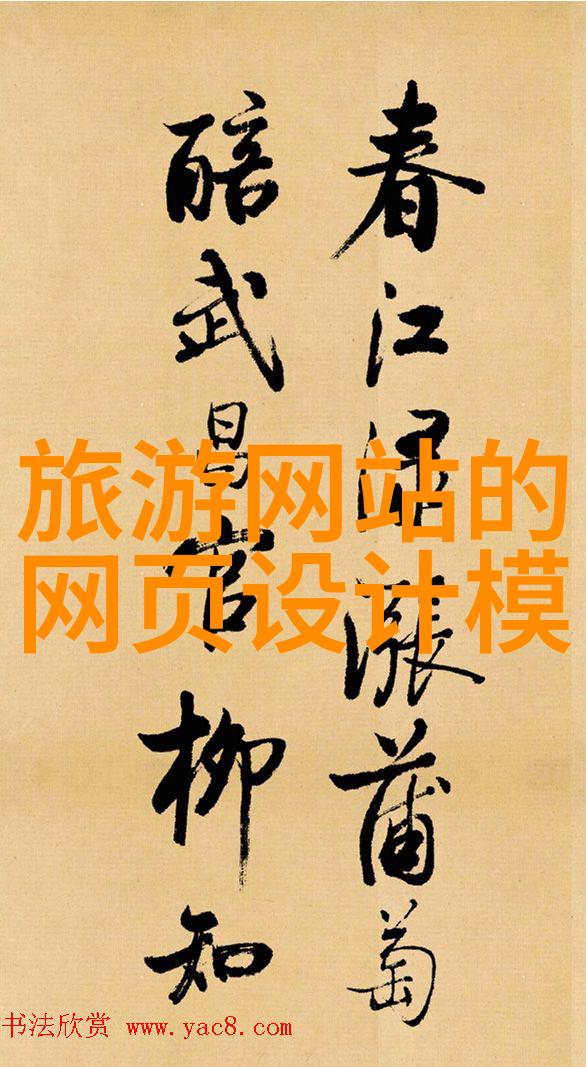 春江渌漲蒲萄
醅武昌官柳知
旅游网站的
网页设计模
书法欣赏 www.yac8.com